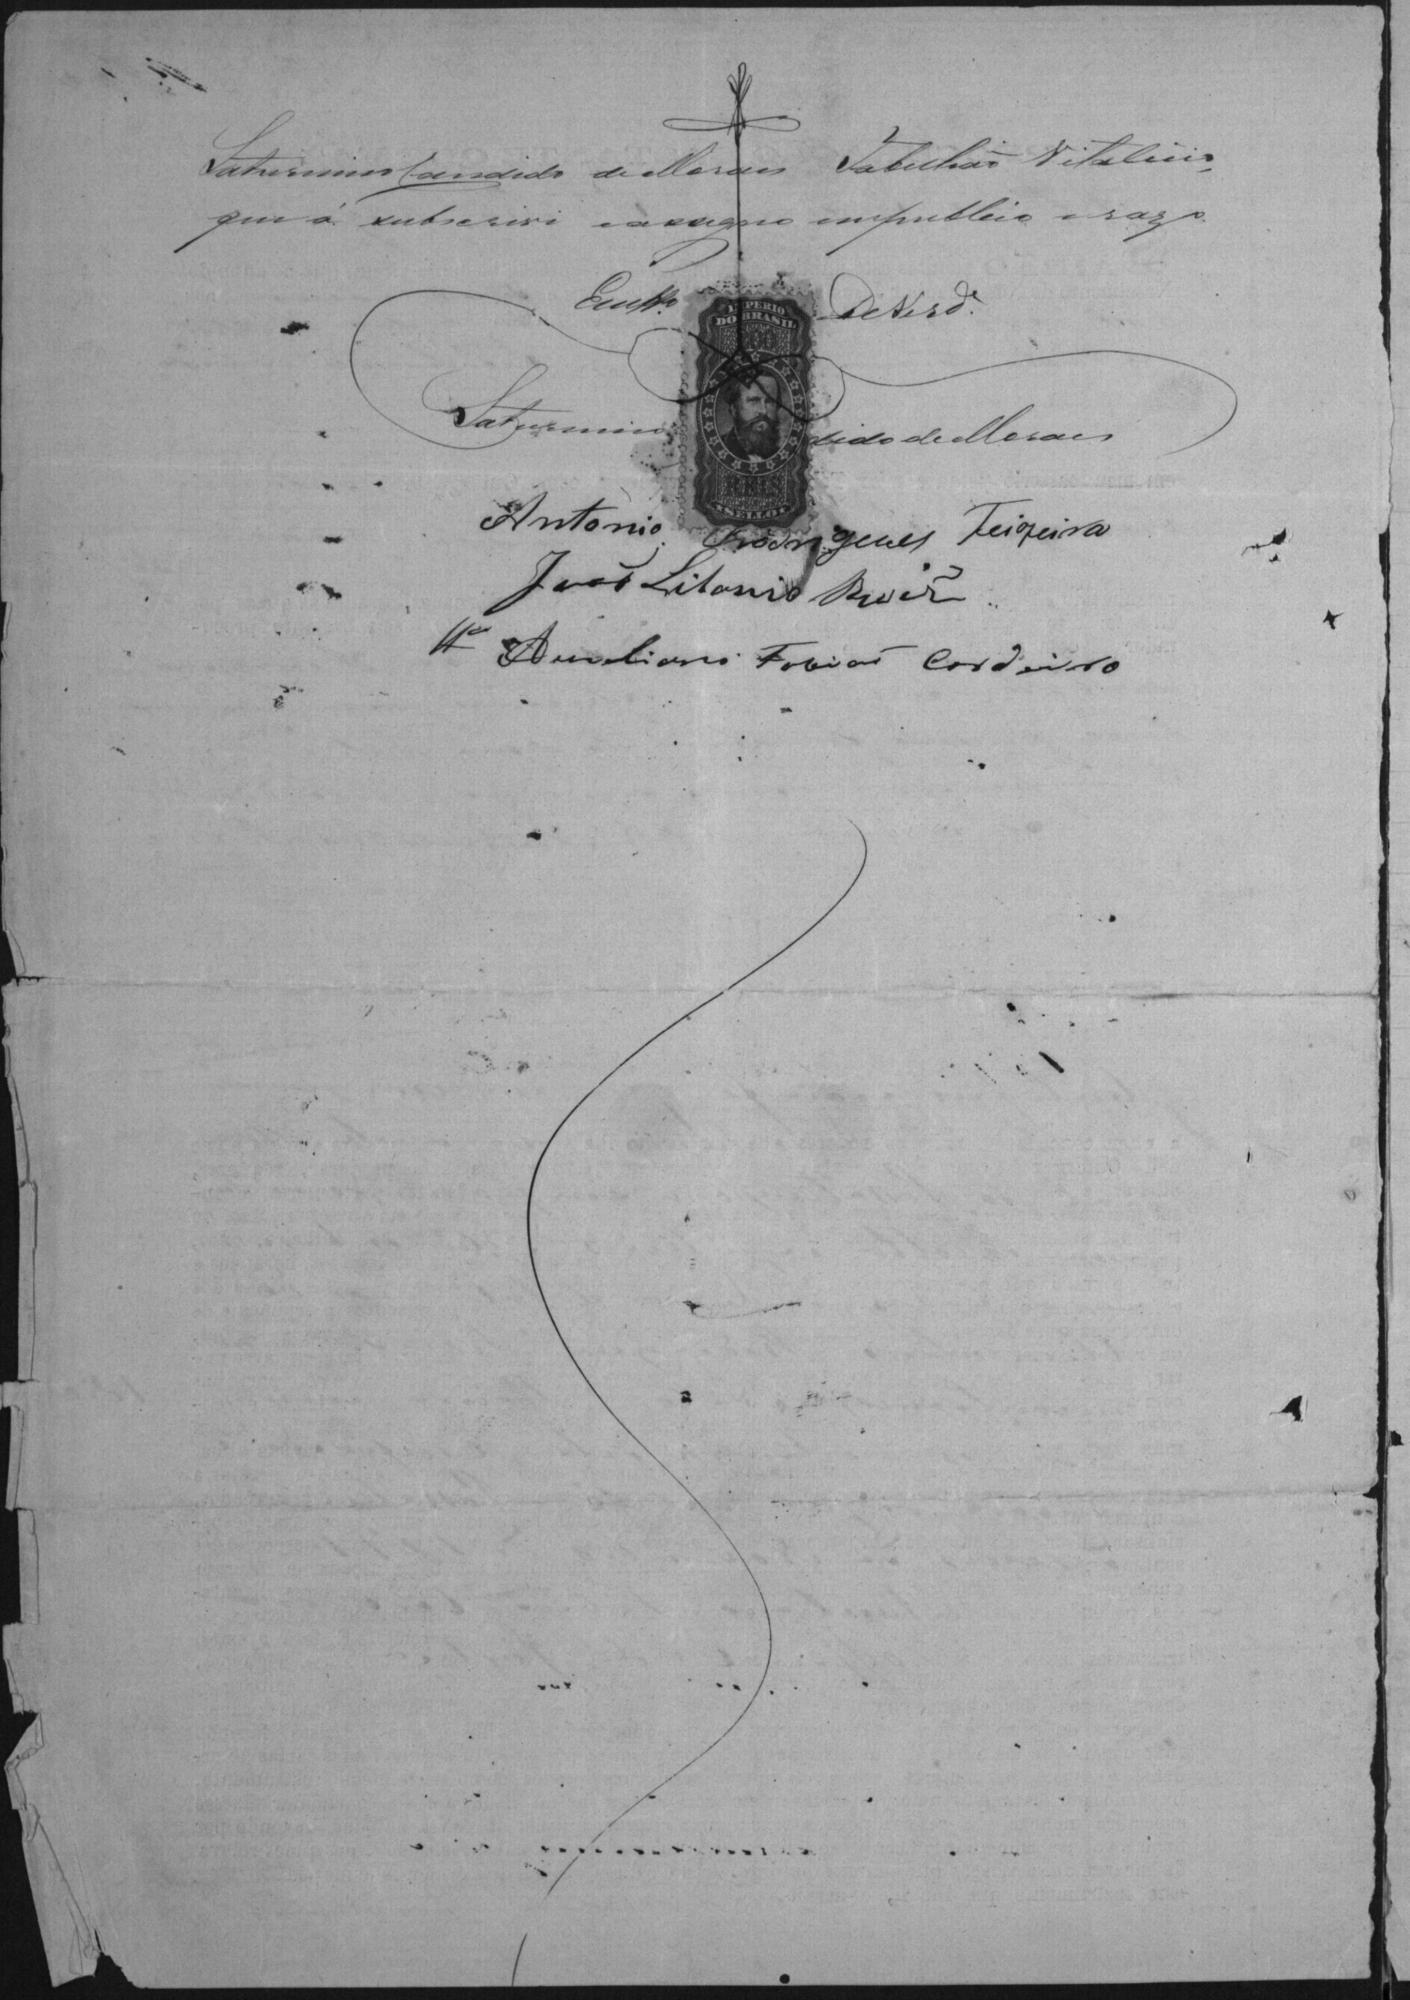 Saturnino Candido de Moraes Tabelião Vitalicio,
que á subscrivi e assigno em publico e razo.
Em tto. de Verde.
IMPERIO
DO BRASIL
200
Saturnino dido de Moraes
REIS
SELLO
Antonio Rodrigues Teixeira
João
Aureliano Tobias Cordeiro